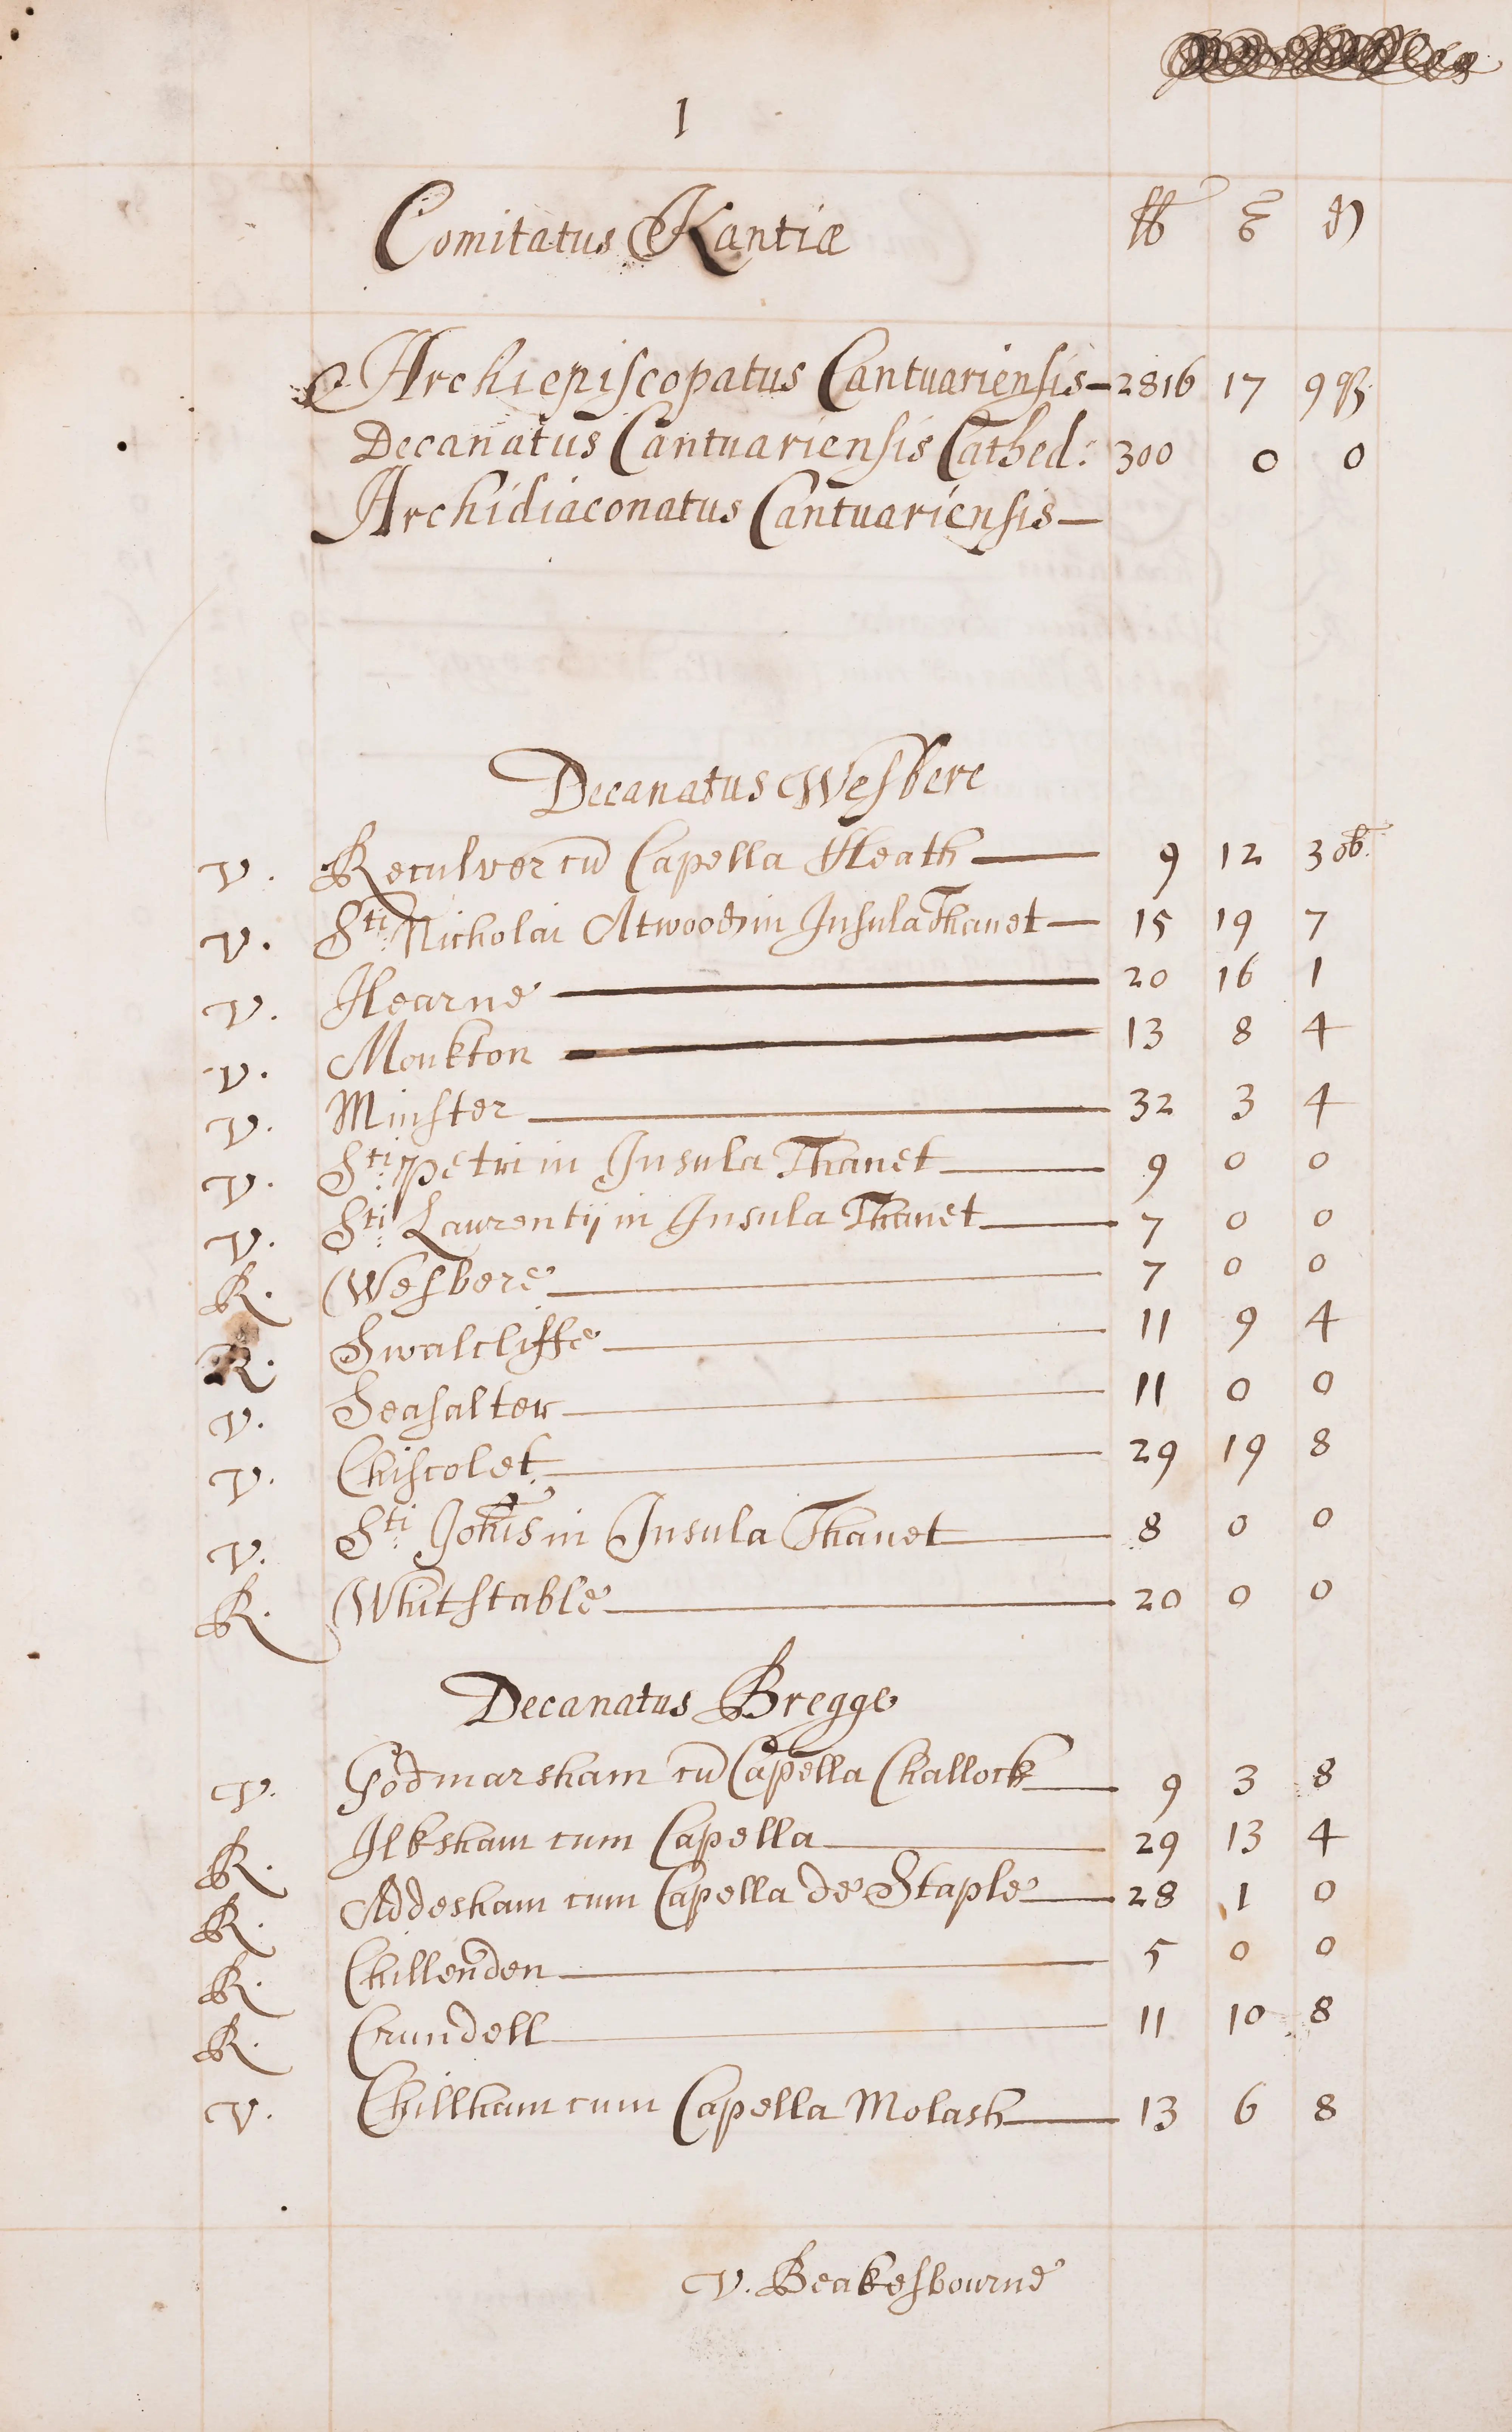 1
Comitatus Kantiæ lb s d
Archiepiscopatus Cantuariensis 2816 17 9 qz
Decanatus Cantuariensis Cathed: 300 0 0
Archidiaconatus Cantuariensis
Decanatus Wesbere
V. Reculver cū Capella Heath 9 12 3 ob.
V. Sti Nicholai Atwood in Insula Thanet 15 19 7
V. Hearne 20 16 1
V. Monkton 13 8 4
V. Minster 32 3 4
V. Sti Petri in Insula Thanet 9 0 0
V. Sti Laurentij in Insula Thanet 7 0 0
R. Wesbere 7 0 0
R. Swalcliffe 11 9 4
V. Seasalter 11 0 0
V. Chiscolet 29 19 8
V. Sti Johis in Insula Thanet 8 0 0
R. Whitstable 20 0 0
Decanatus Bregge
V. Godmarsham cū Capella Challock 9 3 8
R. Ilksham cum Capella 29 13 4
R. Addesham cum Capella de Staple 28 1 0
R. Chillenden 5 0 0
R. Crundell 11 10 8
V. Chillham cum Capella Molash 13 6 8
V. Beakesbourne